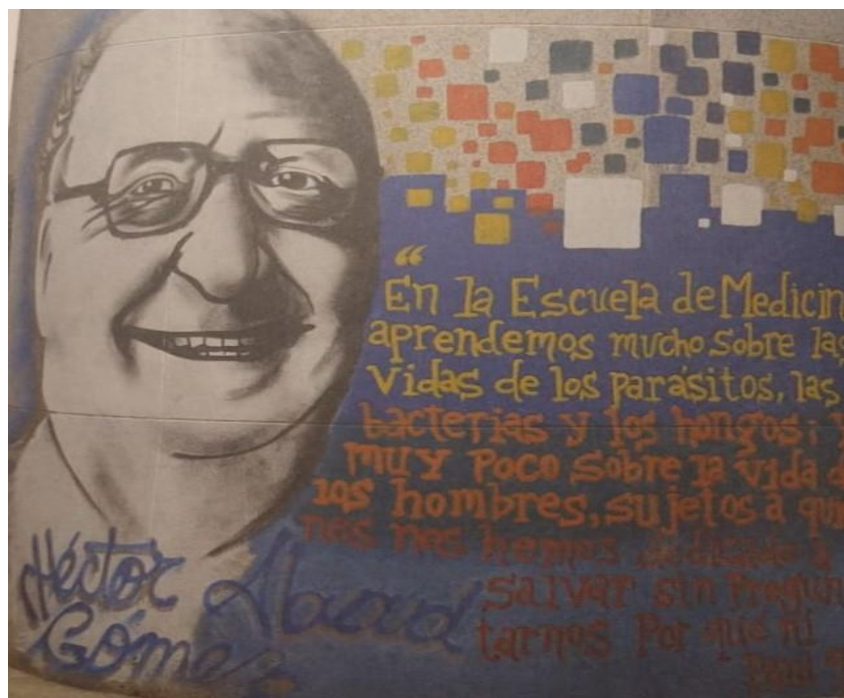 “
En la Escuela de Medicin
aprendemos mucho sobre las
vidas de los parásitos, las
bacterias y los hongos; y
muy poco sobre la vida d
los hombres, sujetos a qui
nes nos hemos dedicado a
salvar sin pregun
tarnos por qué ni
para
Héctor Abad
Gómez